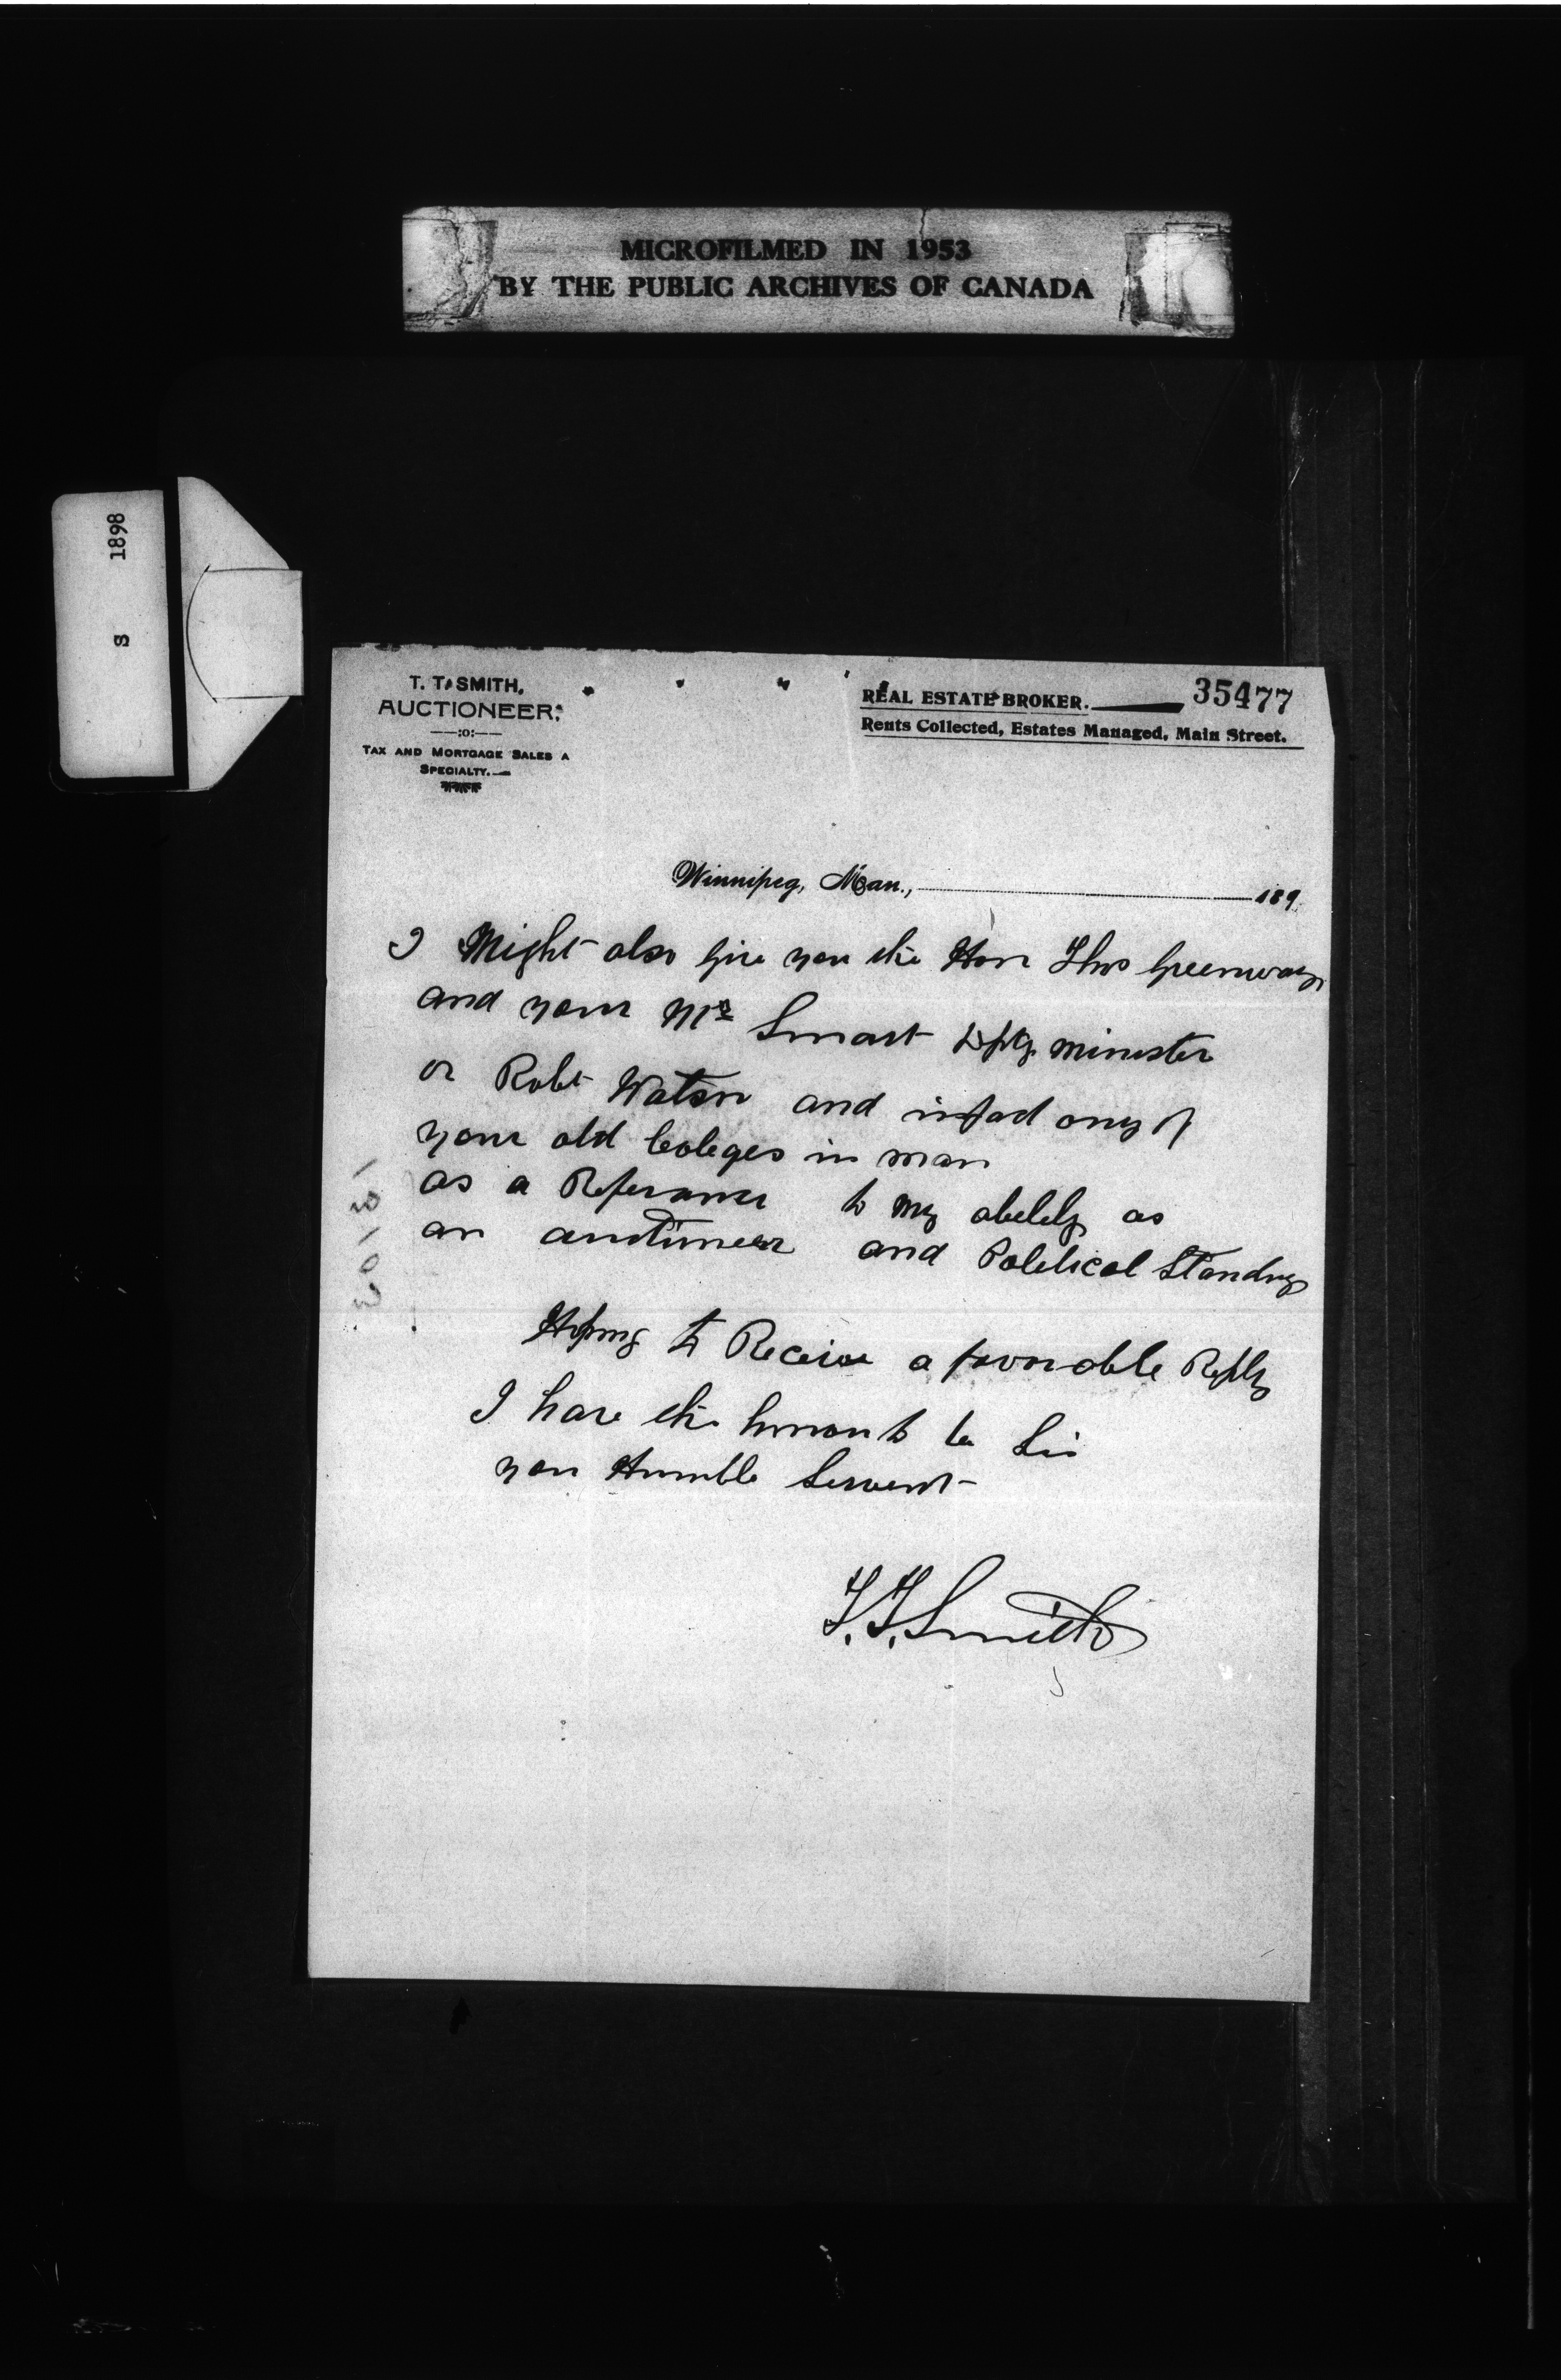 MICROFILMED IN 1953
BY THE PUBLIC ARCHIVES OF CANADA
S 1898
T. T. SMITH,
AUCTIONEER.
—:o:—
TAX AND MORTGAGE SALES A
SPECIALTY.—
REAL ESTATE BROKER.
35477
Rents Collected, Estates Managed, Main Street.
Winnipeg, Man., 189
I Might also give you the Hon Thos Greenway
and your Mr Smart Dpty minister
or Robt Watson and infact any of
your old Coleges in man
as a Referance to my abelely as
an auctineer and Polelical Standng
Hopng to Receive a favorable Reply
I have the honor to be Sir
you Humble Servent
T. T. Smith